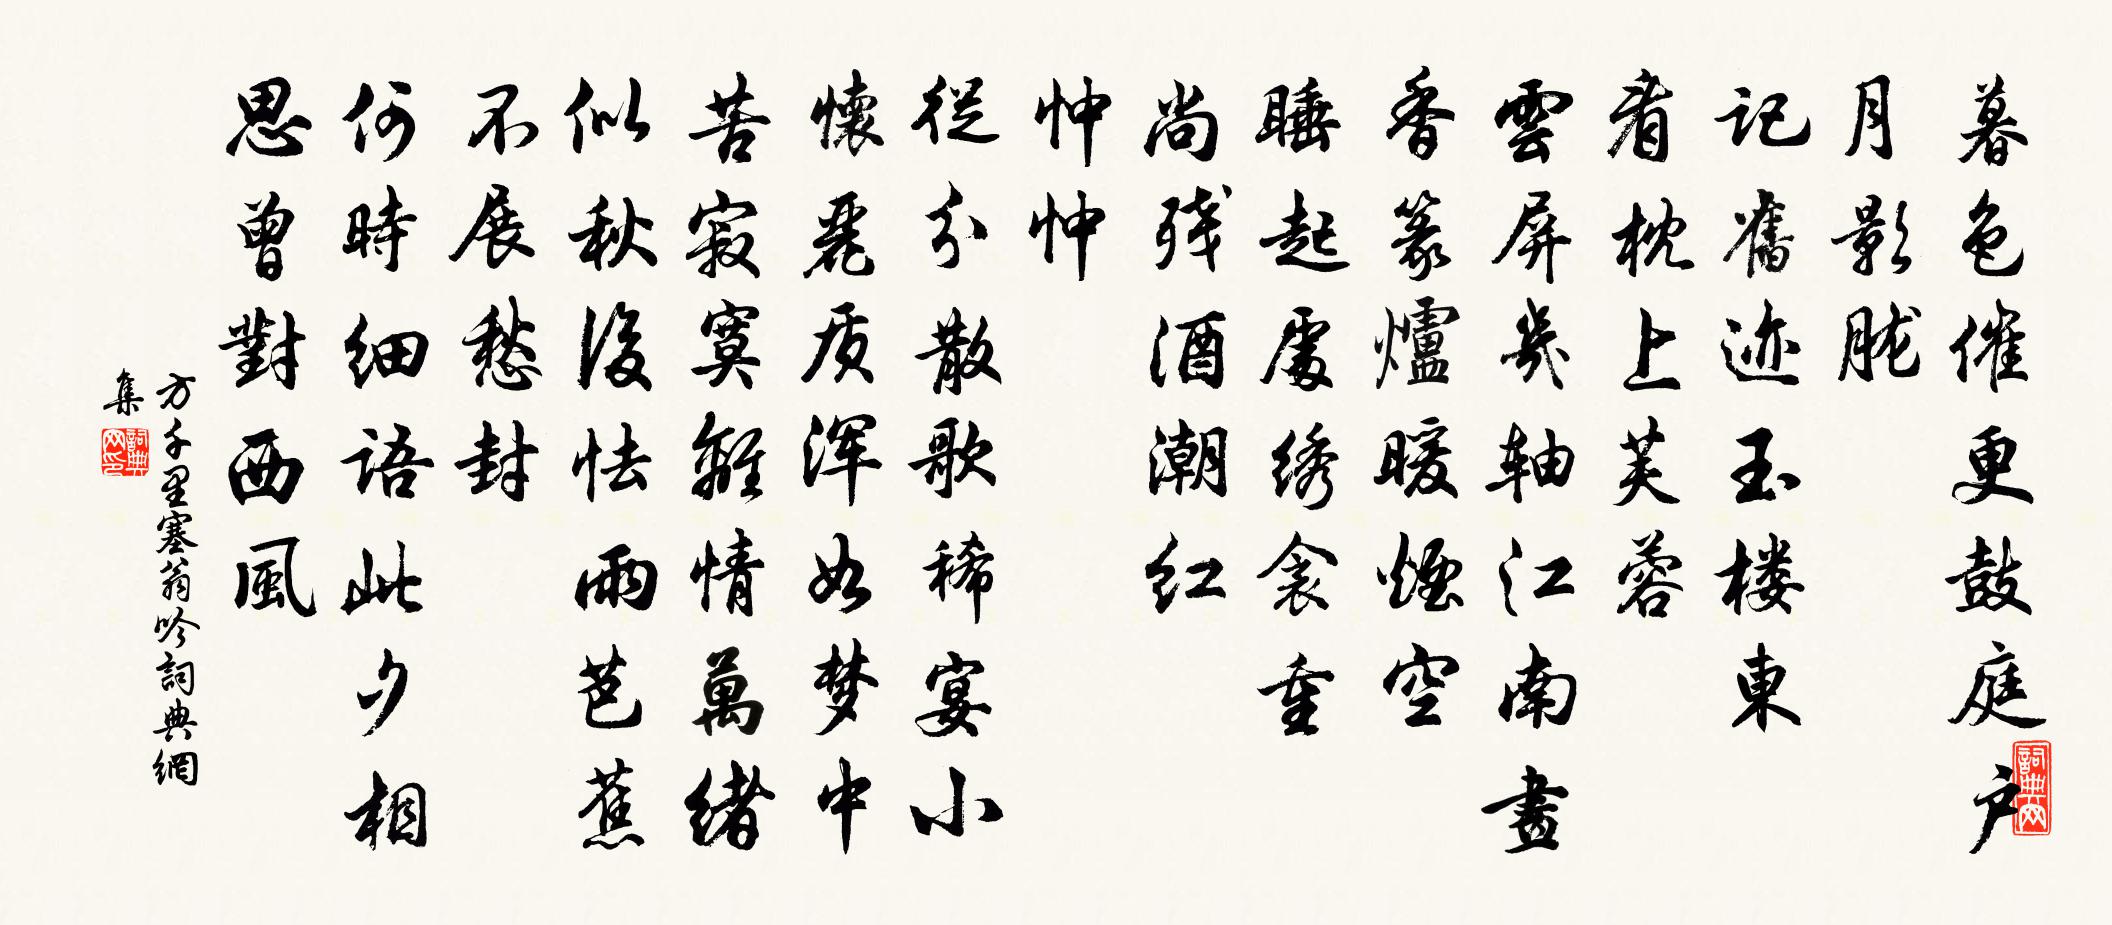 暮色催更鼓庭户
月影胧
记舊迹玉楼東
看枕上芙蓉
雲屏幾轴江南畫
香篆爐暖煙空
睡起處绣衾重
尚残酒潮红
忡忡
從分散歌稀宴小
懷麗质浑如梦中
苦寂寞離情萬緒
似秋後怯雨芭蕉
不展愁封
何時细语此夕相
思曾對西風
方千里塞翁吟詞典網
集
詞典网
詞典网印